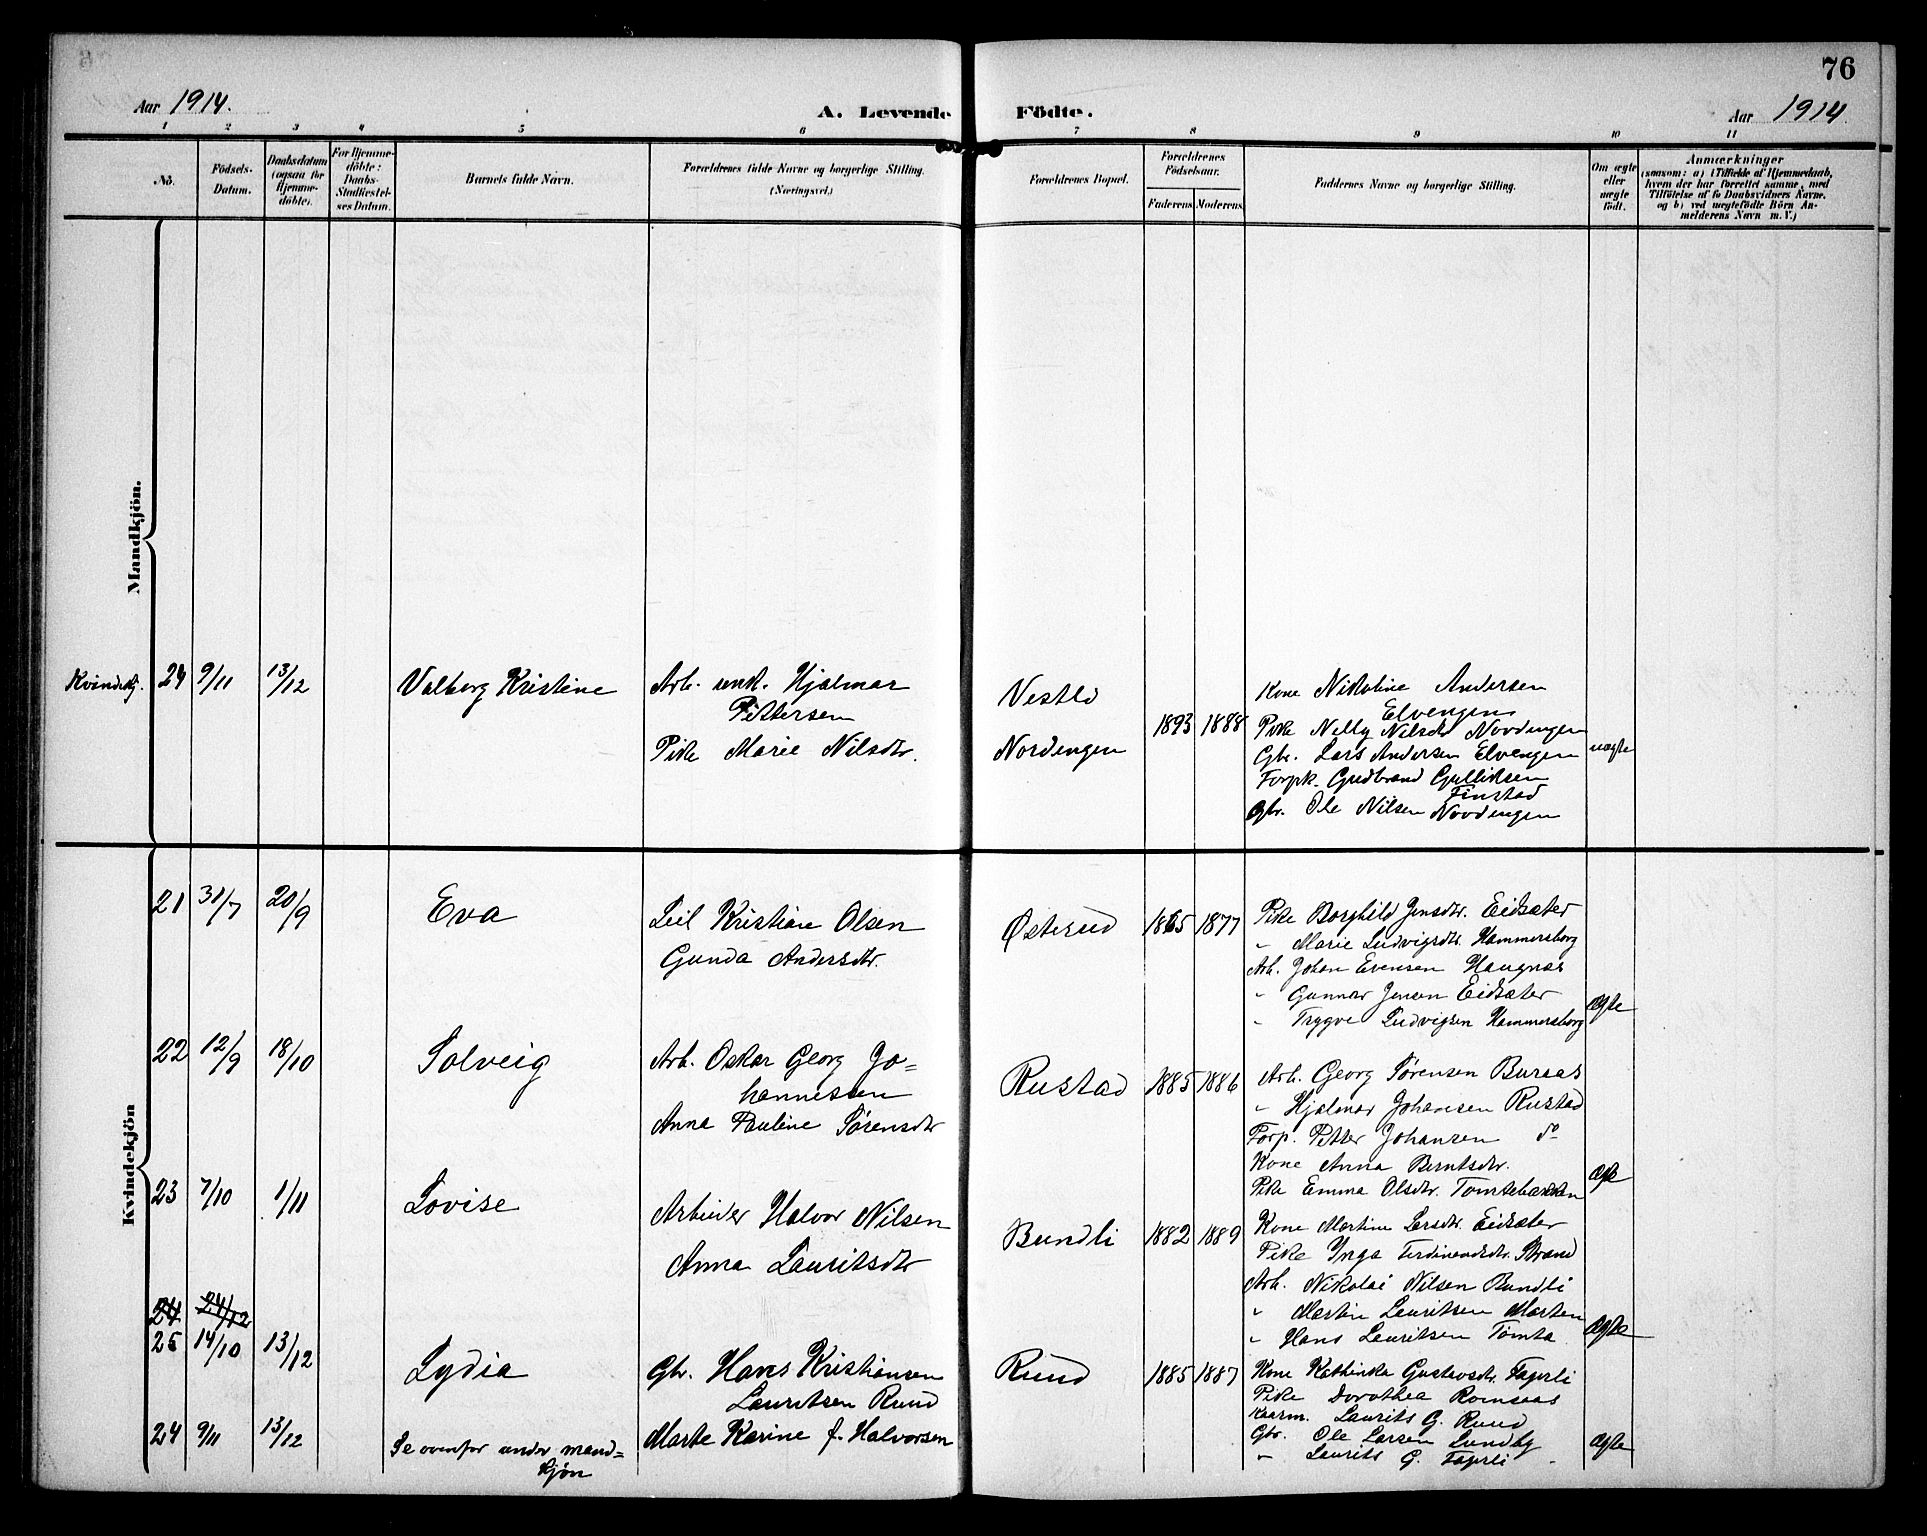 76
Aar 1914.
A. Levende Födte.
Aar 1914.
1 2 3 4 5 6 7 8 9 10 11
No.
Födsels-
Datum.
Daabsdatum
(ogsaa for
Hjemme-
döbte).
For Hjemme-
döbte:
Daabs-
Stadfæstel-
ses Datum.
Barnets fulde Navn.
Forældrenes fulde Navne og borgerlige Stilling.
(Næringsvei.)
Forældrenes Bopæl.
Forældrenes
Födselsaar.
Faderens. Moderens.
Faddernes Navne og borgerlige Stilling.
Om ægte
eller
uægte
födt.
Anmærkninger
(saasom: a) i Tilfælde af Hjemmedaab,
hvem der har forrettet samme, med
Tilföielse af to Daabsvidners Navne,
og b) ved uægtefödte Börn An-
melderens Navn m. V.)
Mandkjön.
Kvindekj. 24 9/11 13/12
Valborg Kristine
Arb. unk. Hjalmar
Pettersen
Pike Marie Nilsdtr.
Vestlo
Nordengen
1893 1888
Kone Nikoline Andersen
Elvengen
Pike Nelly Nilsdtr Nordengen
Gbr. Lars Andersen Elvengen
Forpk. Gudbrand Gulliksen
Finstad
Gbr. Ole Nilsen Nordengen
uægte
Kvindekjön
21 31/7 20/9
Eva
Leil Kristian Olsen
Gunda Andersdtr.
Østerud
1865 1877
Pike Borghild Jensdtr. Eidsæter
" Marie Ludvigsdtr. Hammersborg
Arb. Johan Evensen Haugnæs
" Gunnar Jensen Eidsæter
" Trygve Ludvigsen Hammersborg
ægte
22 12/9 18/10
Solveig
Arb. Oskar Georg Jo=
hannessen
Anna Pauline Sørensdtr
Rustad
1885 1886
Arb. Georg Sørensen Buraas
" Hjalmar Johansen Rustad
Forp. Petter Johansen do
Kone Anna Berntsdtr.
Pike Emma Olsdtr. Tomtebakken
ægte
23 7/10 1/11
Lovise
Arbeider Halvor Nilsen
Anna Lauritsdtr
Bundli
1882 1889
Kone Martine Larsdtr. Eidsæter
Pike Ynga Ferdinandsdtr. Strand
Arb. Nikolai Nilsen Bundli
" Martin Lauritsen Morten
" Hans Lauritsen Tomta
ægte
24 24/12
25 14/10 13/12
Lydia
Gbr. Hans Kristiansen
Lauritsen Ruud
Marte Karine f. Halvorsen
Ruud
1885 1887
Kone Kathinka Gustavsdtr. Fagerli
Pike Dorothea Romsaas
Kaarm. Laurits G. Ruud
Gbr. Ole Larsen Lundby
" Laurits G. Fagerli
ægte
24 9/11 13/12
Se ovenfor under mand=
kjøn